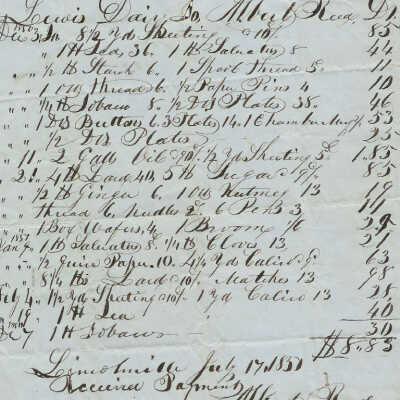 Lewis Dair To Albert Reed Dr.
Dec 3, To 8 1/2 yd Sheeting 10/. 85
" " 1 lb Tea, 36. 1 lb Saleratus 8 44
" " 1/2 lb Starch 6. 1 Spool Thread 5. 11
" " 1 oz Thread 6. 1/2 Paper Pins 4 10
" " 1/4 lb Tobacco 8. 1/2 Doz Plates 38. 46
" " 1 Doz Buttons 6. 3 Plates 14. 1 Chamber 53
" " 1/2 Doz Plates 25
" 11 2 Galls Oil 1/2 yd Sheeting 5. 1.85
" 4 lb Lard 5 lb Sugar 85
" " 1/2 lb Ginger 6 1 oz Nutmeg 13 19
" " Thread 6. Needles 2. 6 3 11
" " 1 Box Wafers 4 1 Broom 29
1851
Jan 7 " 1 lb Saleratus 8. 1/4 lb Cloves 13 21
" " 1/2 Quire Paper 10. 4 1/4 yd Calico 63
" " 8 1/4 lbs Lard 10/. Matches 13 98
Feb 1 1/2 yd Sheeting 10/. 1 yd Calico 13 28
" 19 1 lb Tea 40
7 1 lb Tobacco 30
$8.83
Lincolnville July 17, 1851
Received Payment
Albert Reed